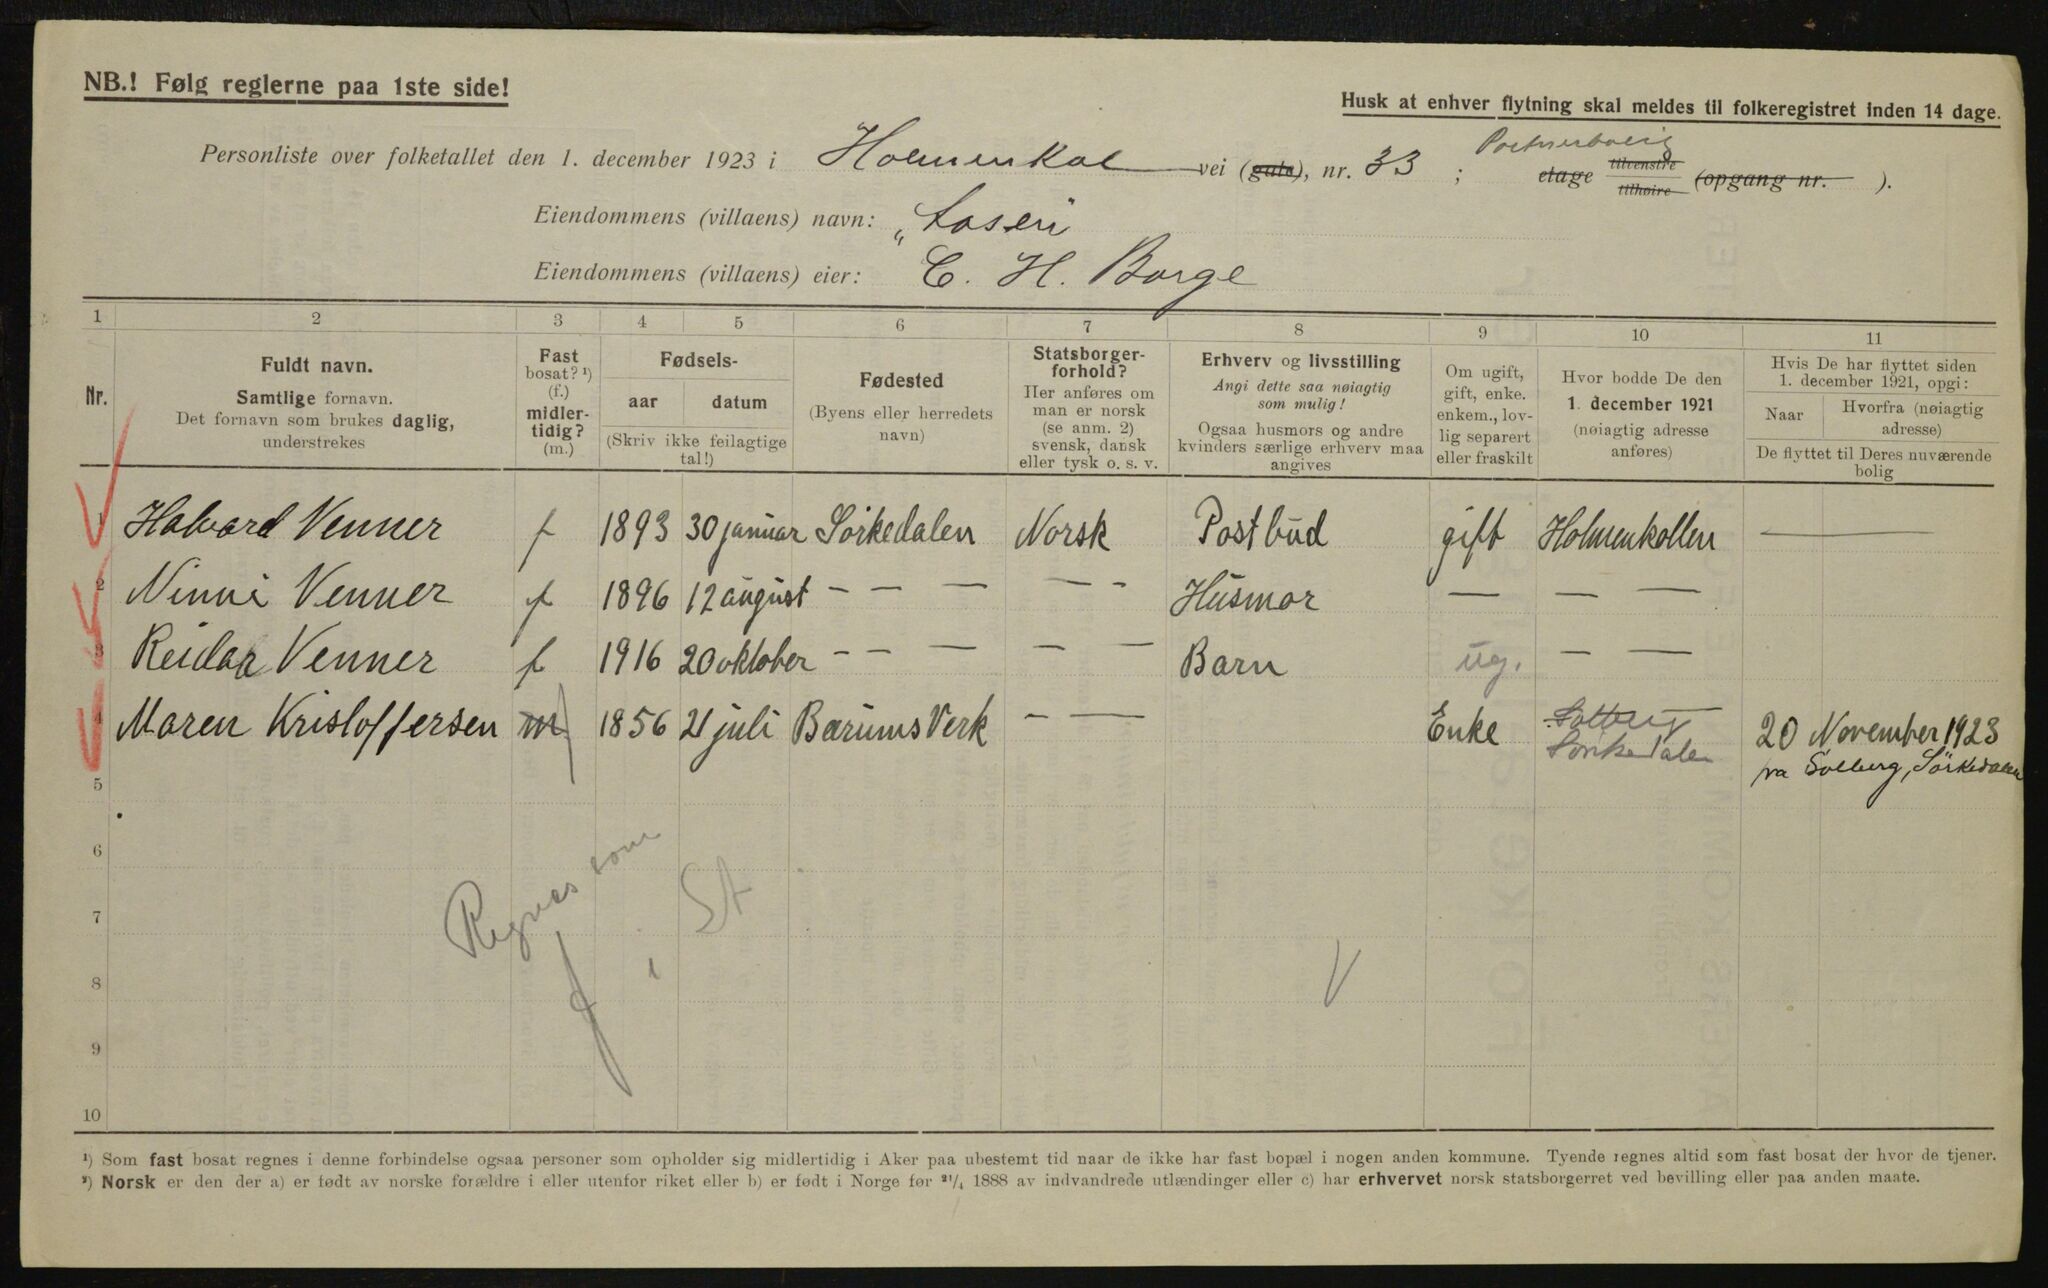 NB.! Følg reglerne paa 1ste side!
Husk at enhver flytning skal meldes til folkeregistret inden 14 dage.
Personliste over folketallet den 1. december 1923 i Holmenkol vei (gate), nr. 33 ; etage tilvenstre tilhøire (opgang nr. ).
Eiendommens (villaens) navn:
Eiendommens (villaens) eier: C. H. Borge
1 2 3 4 5 6 7 8 9 10 11
Nr.
Fuldt navn.
Samtlige fornavn.
Det fornavn som brukes daglig,
understrekes
Fast
bosat? ¹)
(f.)
midler-
tidig?
(m.)
Fødsels-
aar datum
(Skriv ikke feilagtige
tal!)
Fødested
(Byens eller herredets
navn)
Statsborger-
forhold?
Her anføres om
man er norsk
(se anm. 2)
svensk, dansk
eller tysk o. s. v.
Erhverv og livsstilling
Angi dette saa nøiagtig
som mulig!
Ogsaa husmors og andre
kvinders særlige erhverv maa
angives
Om ugift,
gift, enke.
enkem., lov-
lig separert
eller fraskilt
Hvor bodde De den
1. december 1921
(nøiagtig adresse
anføres)
Hvis De har flyttet siden
1. december 1921, opgi:
Naar Hvorfra (nøiagtig
adresse)
De flyttet til Deres nuværende
bolig
1 Halvard Venner f 1893 30 januar Sörkedalen Norsk Postbud gift Holmenkollen —
2 Ninni Venner f 1896 12 august — — — — - Husmor — — —
3 Reidar Venner f 1916 20 oktober — — — — — Barn ug. — —
4 Maren Kristoffersen m f 1856 21 juli Bærums Verk - — Enke Solberg Sörkedalen 20 November 1923
fra Solberg, Sörkedalen
5
6
Regnes som
7
f i St
8
V
9
10
¹) Som fast bosat regnes i denne forbindelse ogsaa personer som opholder sig midlertidig i Aker paa ubestemt tid naar de ikke har fast bopæl i nogen anden kommune. Tyende regnes altid som fast bosat der hvor de tjener.
²) Norsk er den der a) er født av norske forældre i eller utenfor riket eller b) er født i Norge før ²¹/₄ 1888 av indvandrede utlændinger eller c) har erhvervet norsk statsborgerret ved bevilling eller paa anden maate.